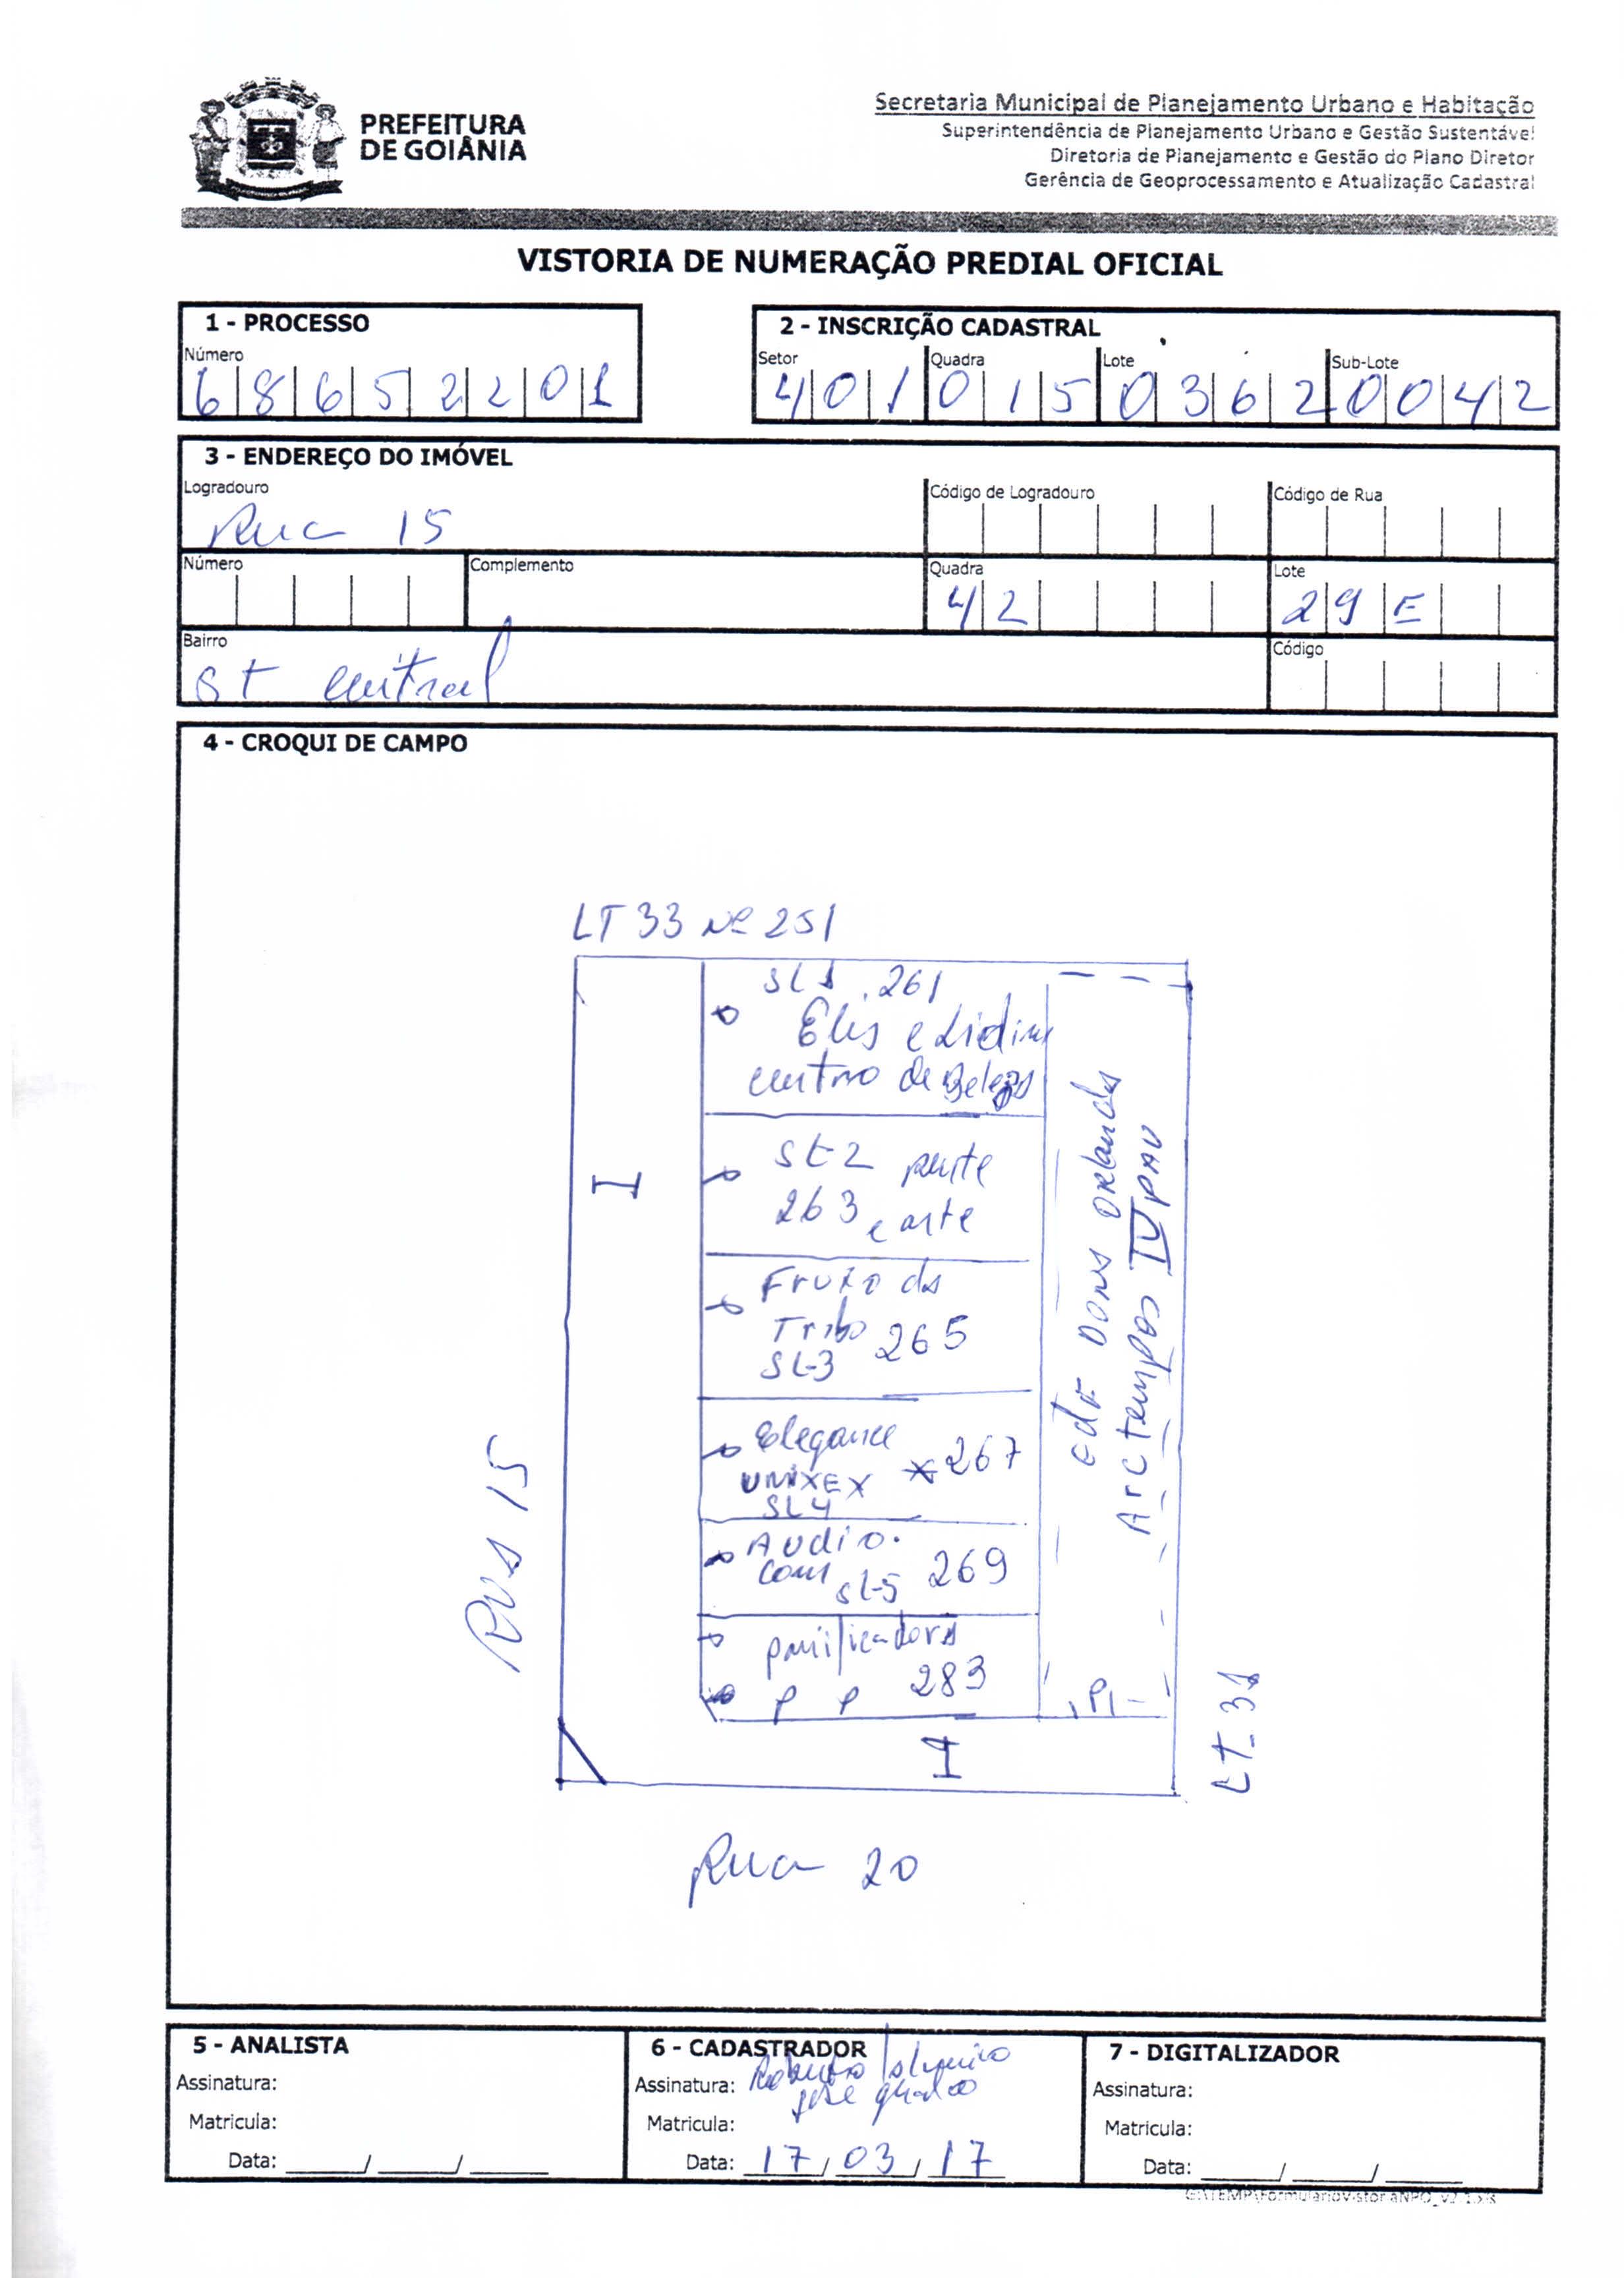 PREFEITURA
DE GOIÂNIA
Secretaria Municipal de Planejamento Urbano e Habitação
Superintendência de Planejamento Urbano e Gestão Sustentável
Diretoria de Planejamento e Gestão do Plano Diretor
Gerência de Geoprocessamento e Atualização Cadastral
VISTORIA DE NUMERAÇÃO PREDIAL OFICIAL
1 - PROCESSO
Número
68652201
2 - INSCRIÇÃO CADASTRAL
Setor Quadra Lote Sub-Lote
401 015 0362 0042
3 - ENDEREÇO DO IMÓVEL
Logradouro Código de Logradouro Código de Rua
Rua 15
Número Complemento Quadra Lote
42 29E
Bairro Código
st central
4 - CROQUI DE CAMPO
LT 33 Nº 251
SL1 261
Elis e Lidin
centro de Beleza
I
SL2 parte
263 e arte
Fruto da
Tribo 265
SL-3
Elegance
UNIXEX * 267
SL4
Audio.
com SL-5 269
panificadora
P P 283
Edf Dona Orlanda
Arc tempos IV PAV
P1
RUA 15
LT-31
I
Rua 20
5 - ANALISTA
Assinatura:
Matricula:
Data: ____/____/____
6 - CADASTRADOR
Assinatura: Roberto
José
Matricula:
Data: 17/03/17
7 - DIGITALIZADOR
Assinatura:
Matricula:
Data: ____/____/____